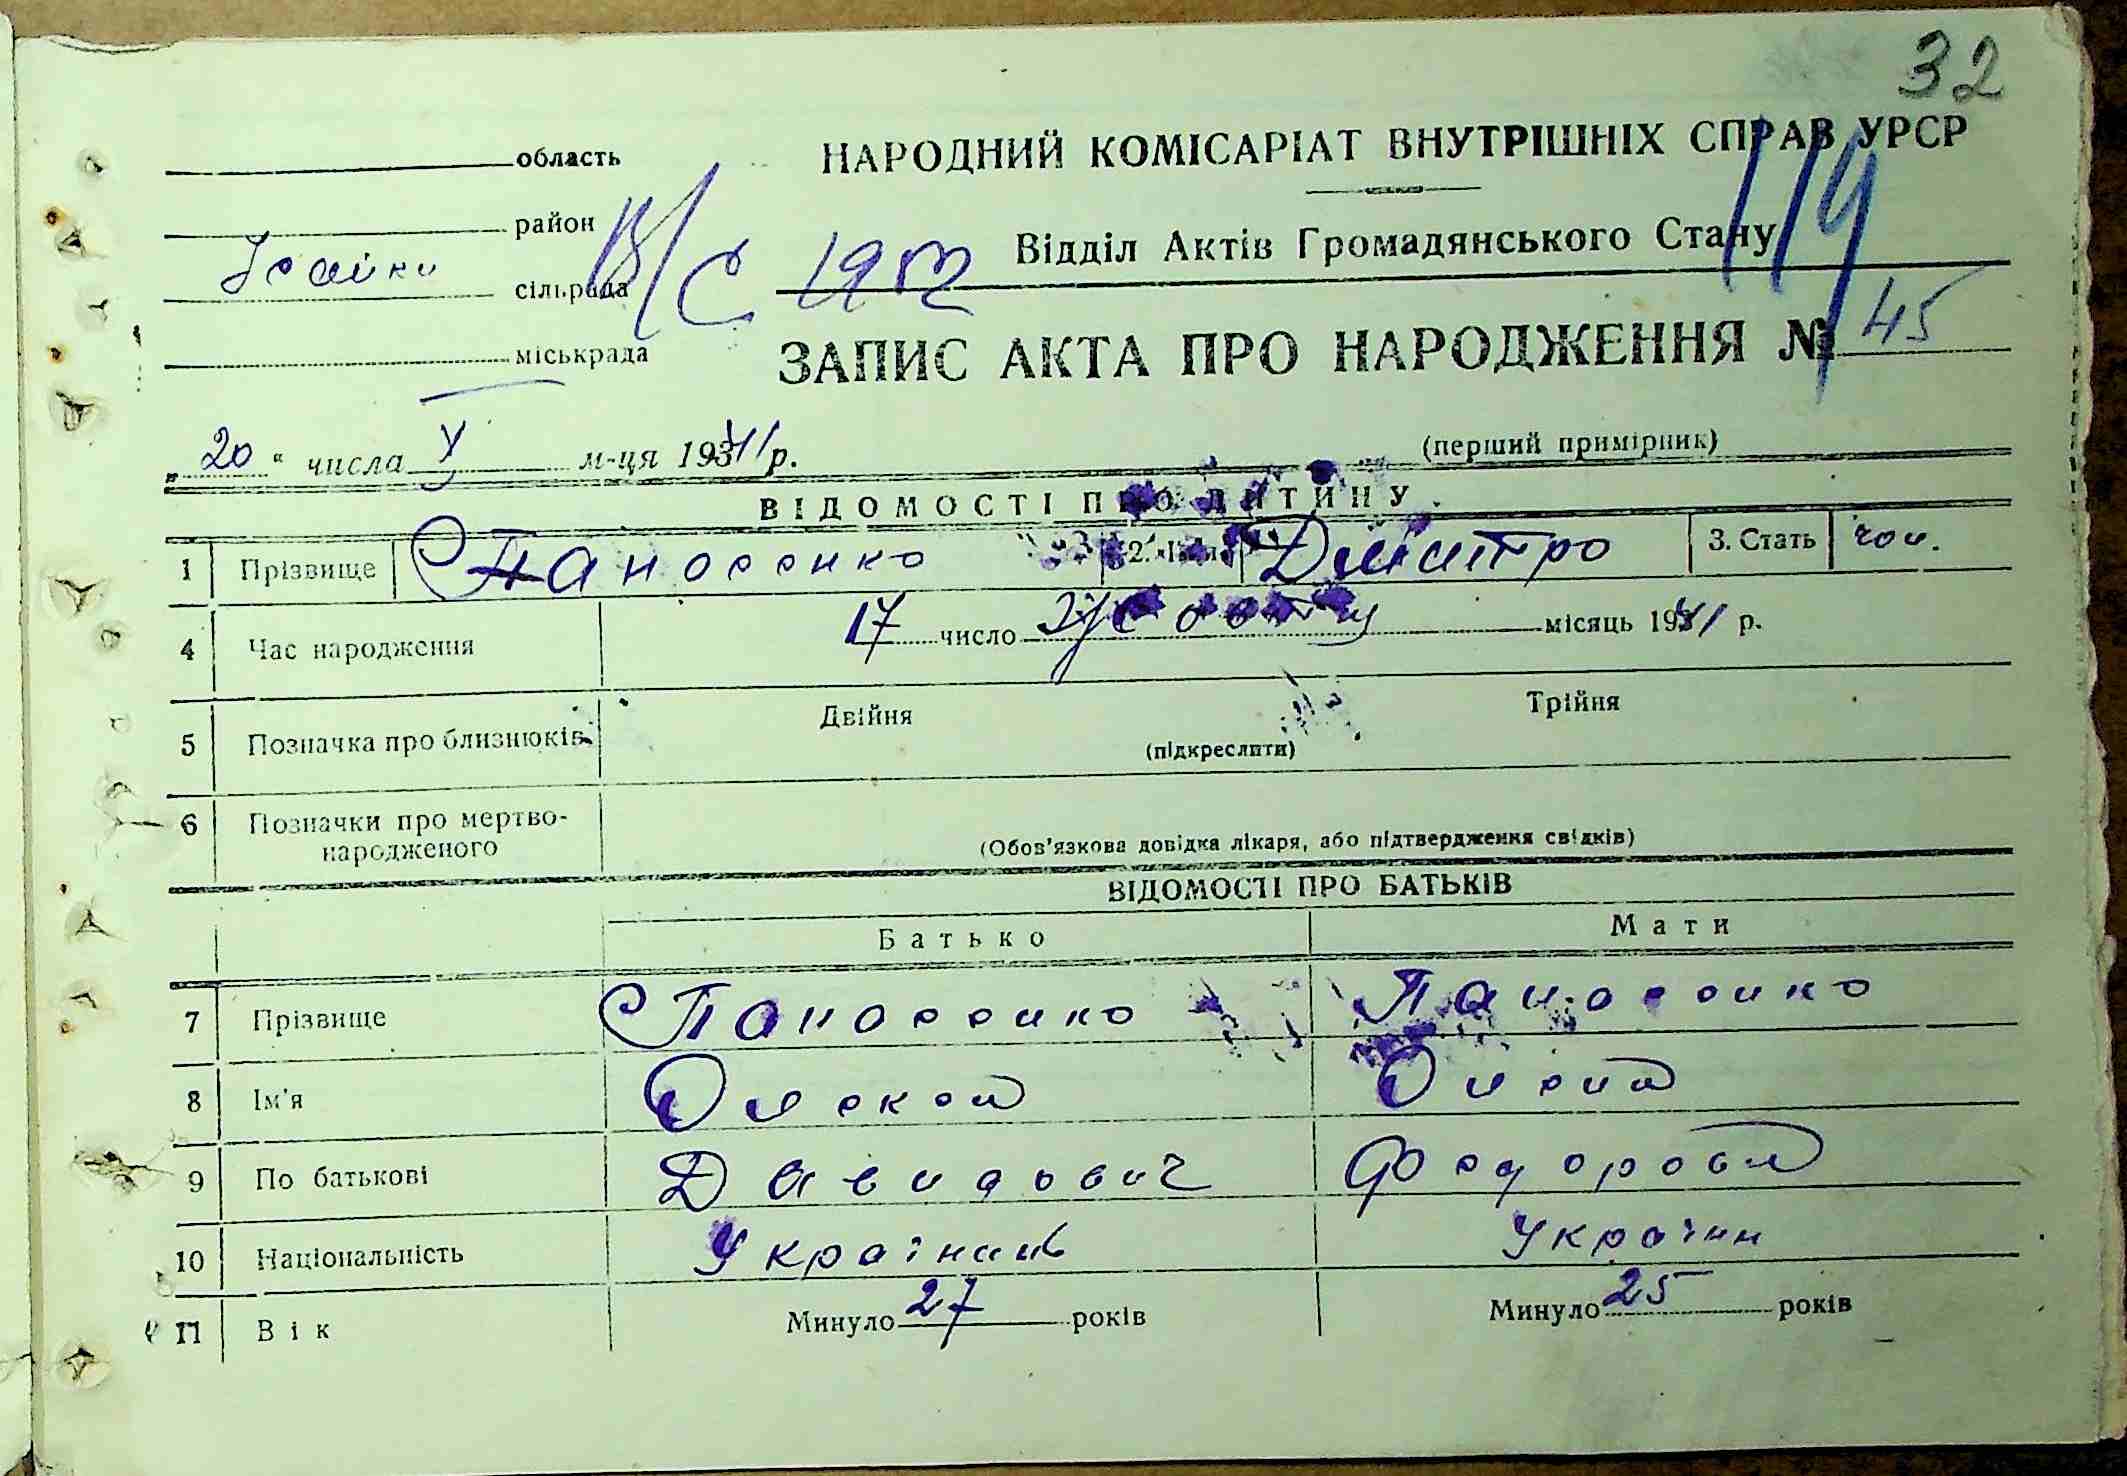 32
область
НАРОДНИЙ КОМІСАРІАТ ВНУТРІШНІХ СПРАВ УРСР
район
119
Ісайки сільрада
В/С 1952
Відділ Актів Громадянського Стану
міськрада
ЗАПИС АКТА ПРО НАРОДЖЕННЯ № 45
„20“ числа V м-ця 1941 р.
(перший примірник)
ВІДОМОСТІ ПРО ДИТИНУ
1 Прізвище Панасенко 2. Ім'я Дмитро 3. Стать чол.
4 Час народження 17 число місяць 1941 р.
5 Позначка про близнюків Двійня Трійня
(підкреслити)
6 Позначки про мертво-
народженого
(Обов'язкова довідка лікаря, або підтвердження свідків)
ВІДОМОСТІ ПРО БАТЬКІВ
Батько Мати
7 Прізвище Панасенко Панасенко
8 Ім'я Олекса Олена
9 По батькові Давидович Федоровна
10 Національність Українець Українка
11 Вік Минуло 27 років Минуло 25 років